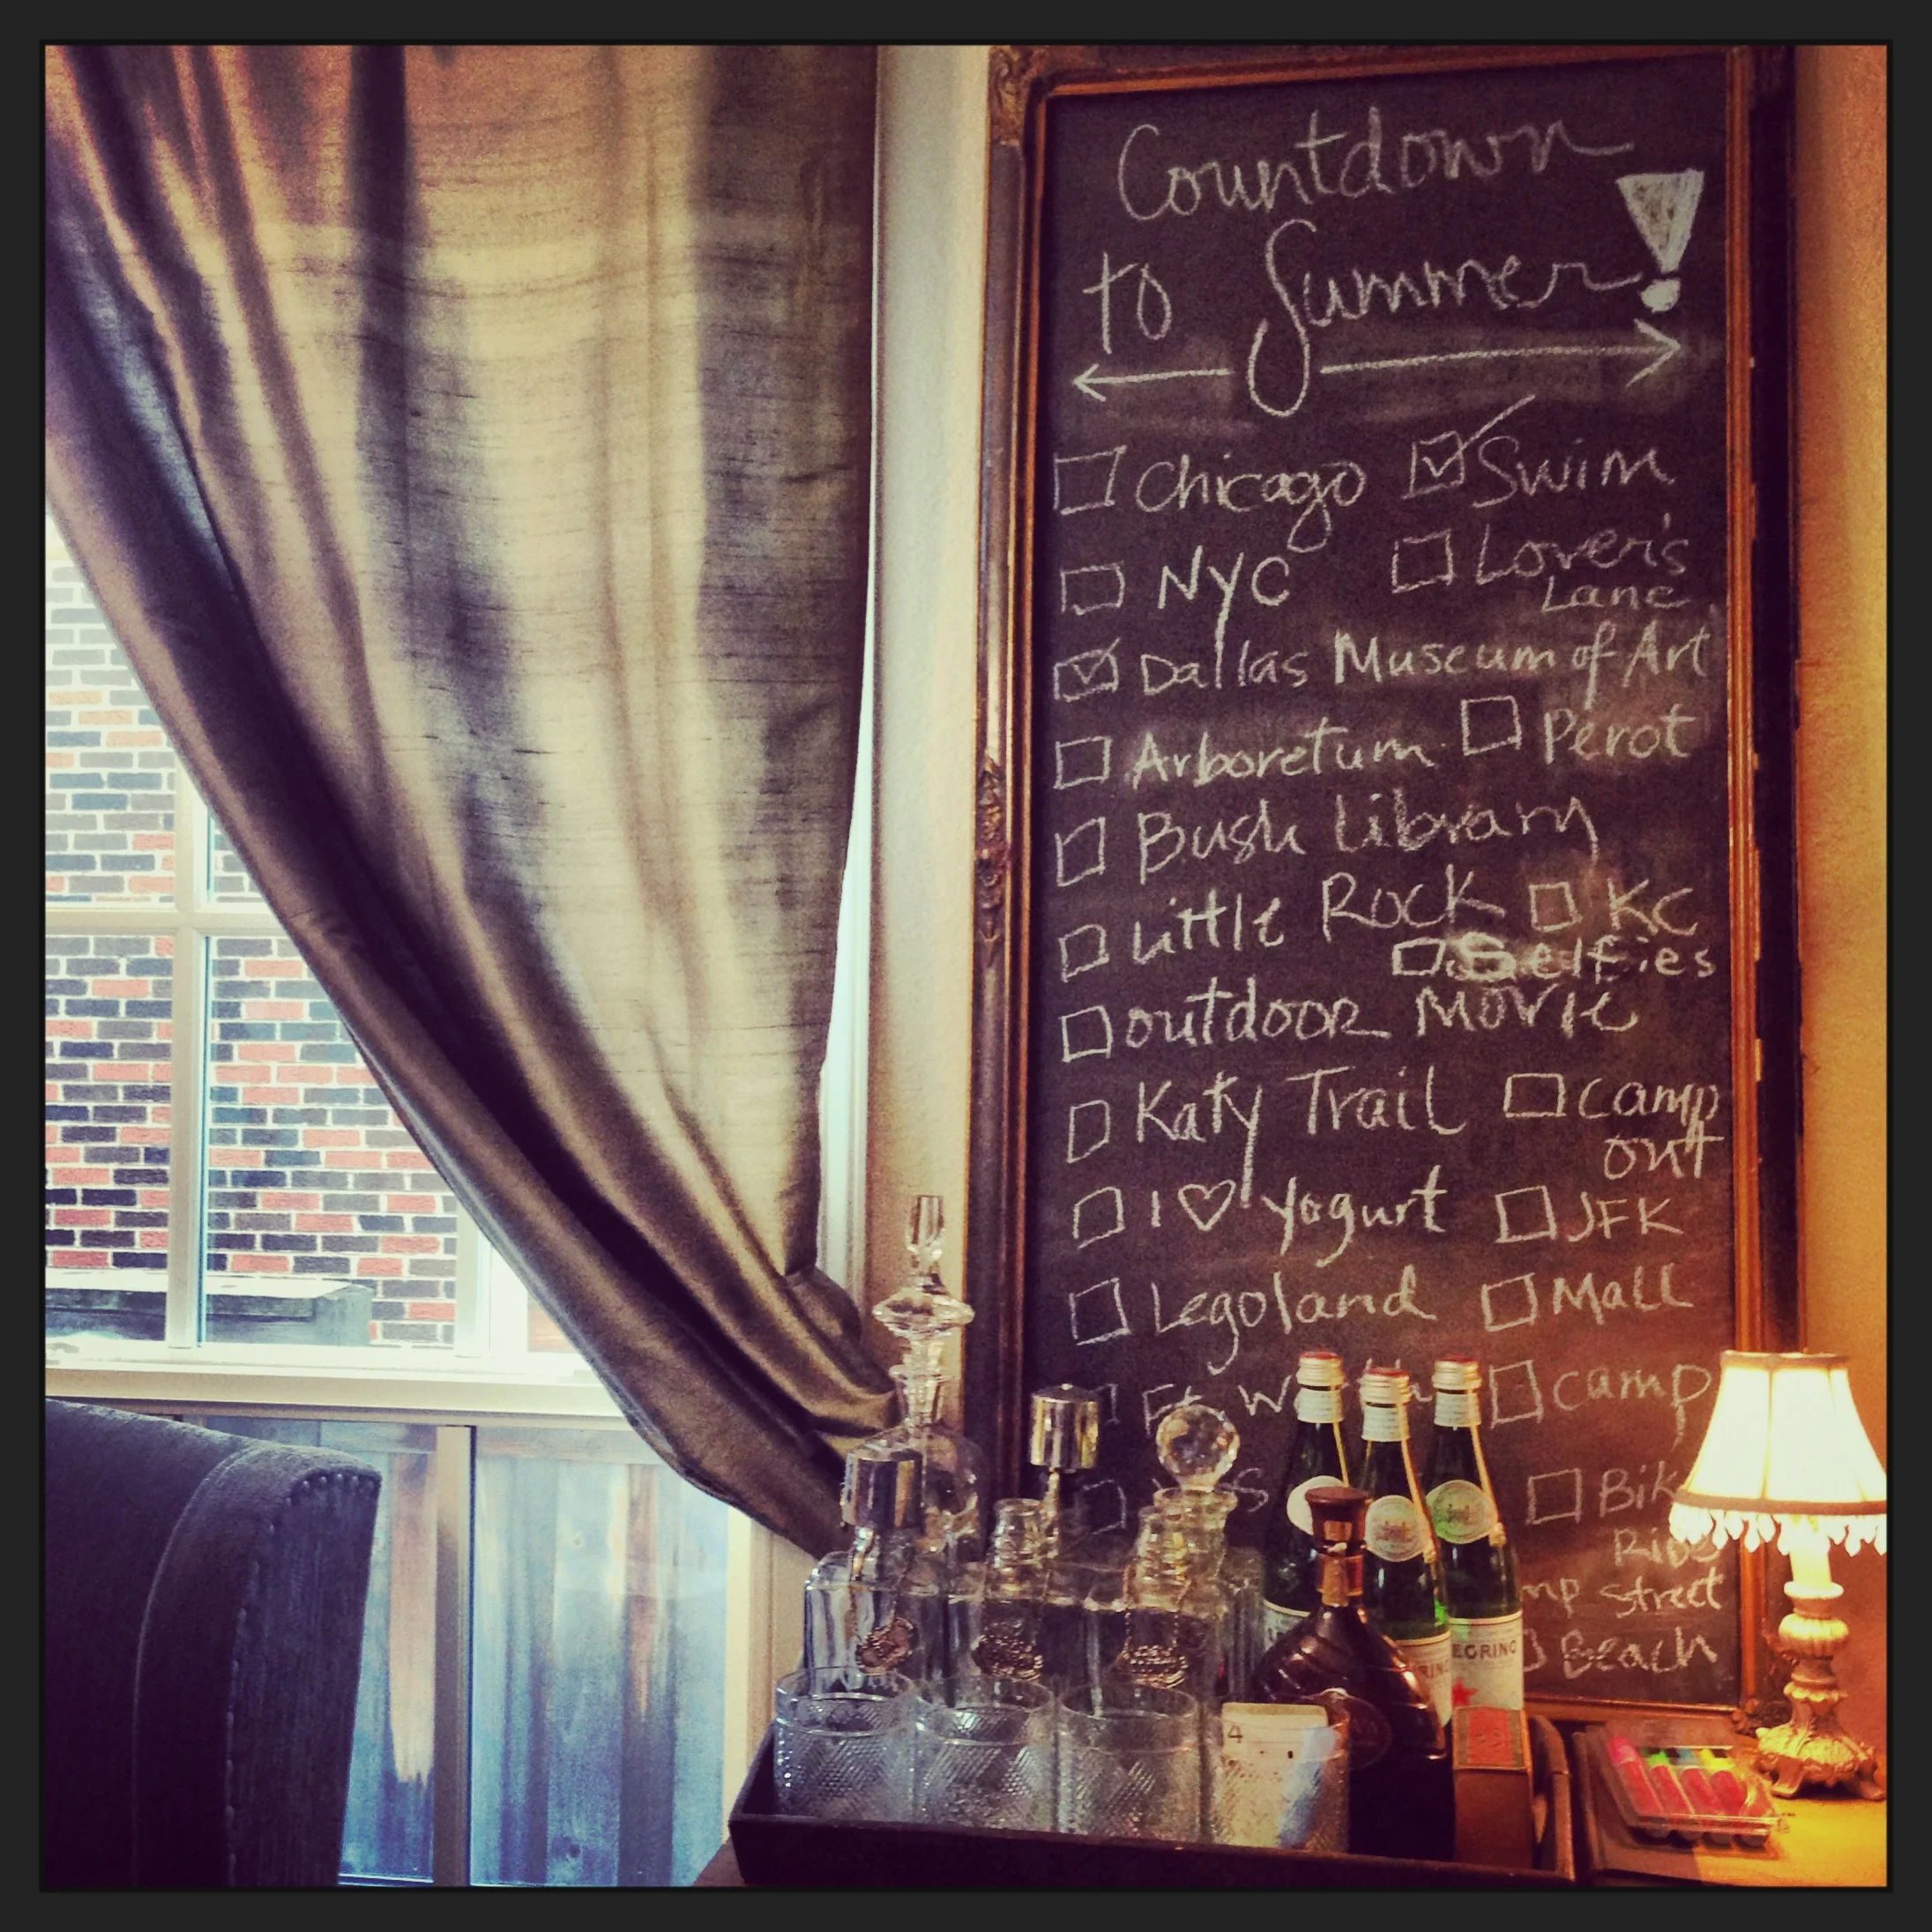 Countdown
to Summer!
Chicago Swim
NYC Lover's
Lane
Dallas Museum of Art
Arboretum Perot
Bush Library
Little Rock KC
Selfies
outdoor movie
Katy Trail camp
out
I ♡ Yogurt JFK
Legoland Mall
Ft. camp
Ride
street
Beach
4